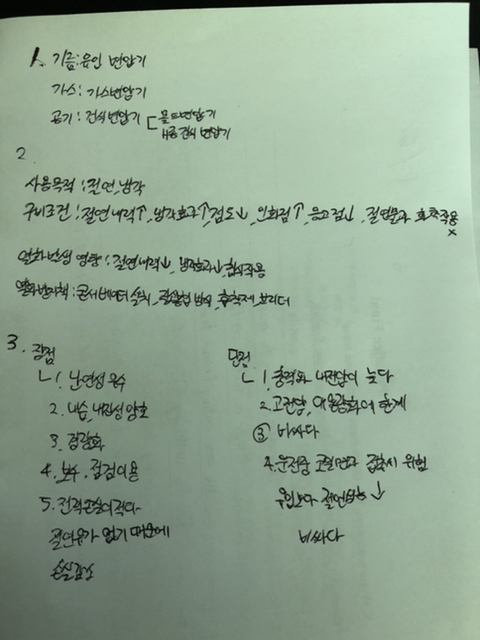 1. 기름: 유입 변압기
가스: 가스변압기
공기: 건식변압기 몰드변압기
H종 건식 변압기
2.
사용목적: 절연, 냉각
구비조건: 절연내력↑, 냉각효과↑, 점도↓, 인화점↑, 응고점↓, 절연물과 화학작용 x
열화 발생 영향: 절연내력↓, 냉각효과↓, 침식작용
열화방지책: 콘서베이터 설치, 질소봉입 방식, 흡착제 브리더
3. 장점
1. 난연성 우수
2. 내습, 내진성 양호
3. 경량화
4. 보수, 점검이용
5. 전력손실이적다
절연유가 없기 때문에
손실감소
단점
1. 충격파 내전압이 낮다
2. 고전압, 대용량화에 한계
③ 비싸다
4. 운전중 코일표면 접촉시 위험
유입보다 절연성능↓
비싸다